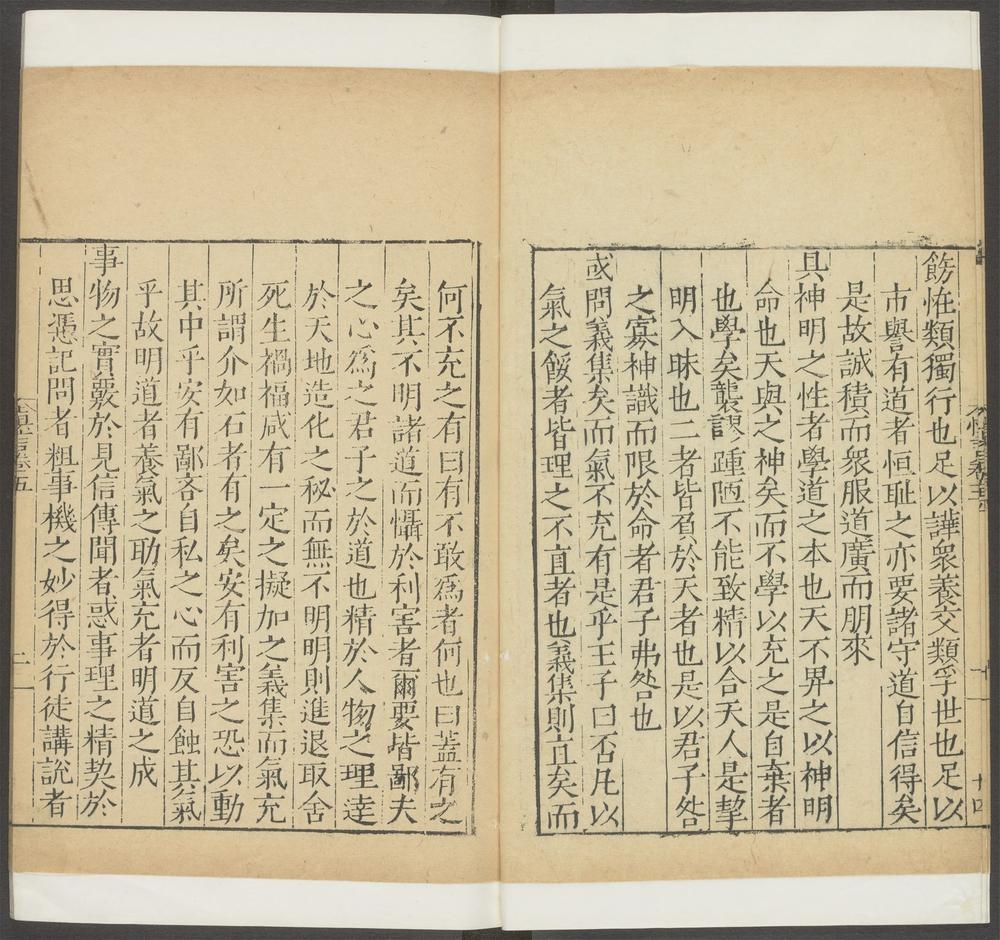 飭恠類獨行也足以譁衆養交類孚世也足以
市譽有道者恒耻之亦要諸守道自信得矣
是故誠積而衆服道廣而朋來
具神明之性者學道之本也天不畀之以神明
命也天與之神矣而不學以充之是自棄者
也學矣襲謬踵陋不能致精以合天人是挈
明入昧也二者皆負於天者也是以君子咎
之寡神識而限於命者君子弗咎也
或問義集矣而氣不充有是乎王子曰否凡以
氣之餒者皆理之不直者也義集則直矣而
何不充之有曰有不敢爲者何也曰蓋有之
矣其不明諸道而懾於利害者爾要皆鄙夫
之心爲之君子之於道也精於人物之理達
於天地造化之秘而無不明明則進退取舍
死生禍福咸有一定之擬加之義集而氣充
所謂介如石者有之矣安有利害之恐以動
其中乎安有鄙吝自私之心而反自蝕其氣
乎故明道者養氣之助氣充者明道之成
事物之實覈於見信傳聞者惑事理之精契於
思憑記問者粗事機之妙得於行徒講說者